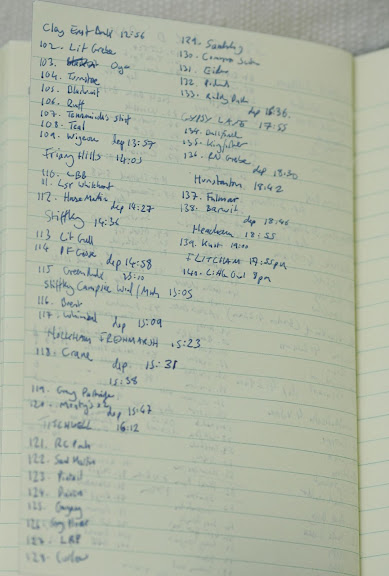 Cley East Bank 12:56
102. Lit Grebe
103. Oyc
104. Turnstone
105. Blackwit
106. Ruff
107. Temminck's stint
108. Teal
109. Wigeon dep 13:57
Friary Hills 14:03
110. LBB
111. Lsr Whitethroat
112. House Martin
dep 14:27
Stiffkey 14:36
113 Lit Gull
114 PF Goose
dep 14:58
115 Greenshank 15:10
Stiffkey Campsite Wood / Marsh 15:05
116. Brent
117. Whimbrel dep 15:09
Holkham FRESHMARSH 15:23
118. Crane
dep. 15:31
15:38
119. Grey Partridge
120. Monty's dep 15:47
TITCHWELL 16:12
121. RC Poch
122. Sand Martin
123. Pintail
124. Raven
125. Gargany
126. Grey Plover
127. LRP
128. Curlew
129. Sanderling
130. Common Scoter
131. Eider
132. Pochard
133. Ruddy Duck
dep 16:36.
GYPSY LANE 17:55
134. Bullfinch
135. Kingfisher
136. RN Grebe
dep 18:30
Hunstanton 18:42
137. Fulmar
138. Barwit
dep 18:46
Heacham 18:55
139. Knot 19:00
FLITCHAM 19:55pm
140. Little Owl 8pm